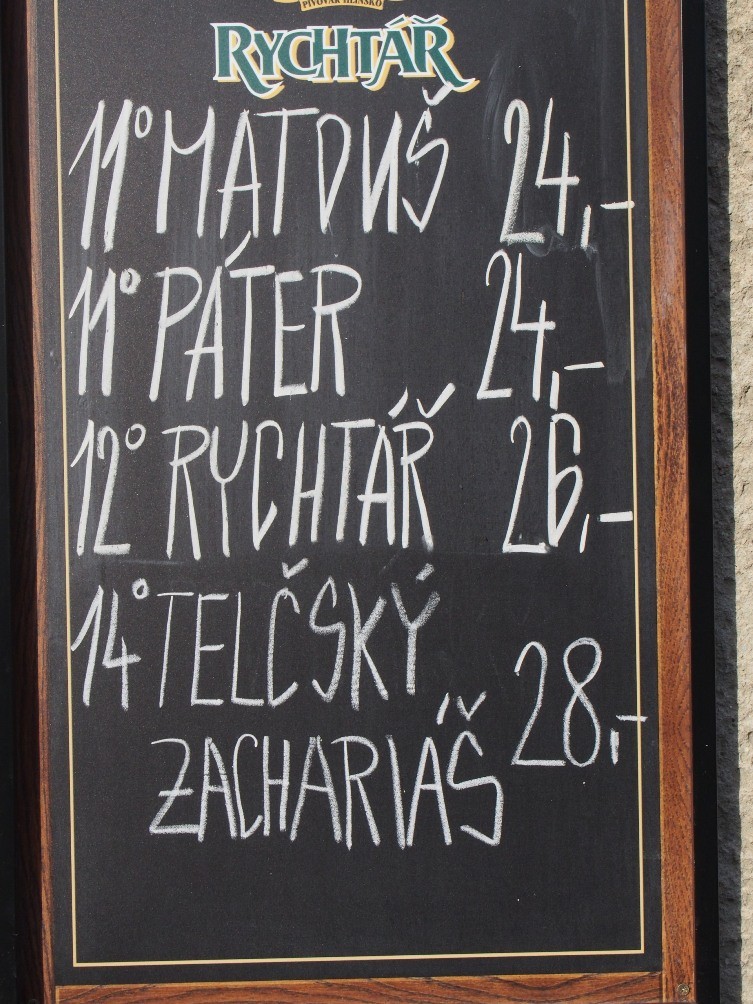 PIVOVAR HLINSKO
RYCHTÁŘ
11° MATOUŠ 24,-
11° PÁTER 24,-
12° RYCHTÁŘ 26,-
14° TELČSKÝ
ZACHARIÁŠ 28,-